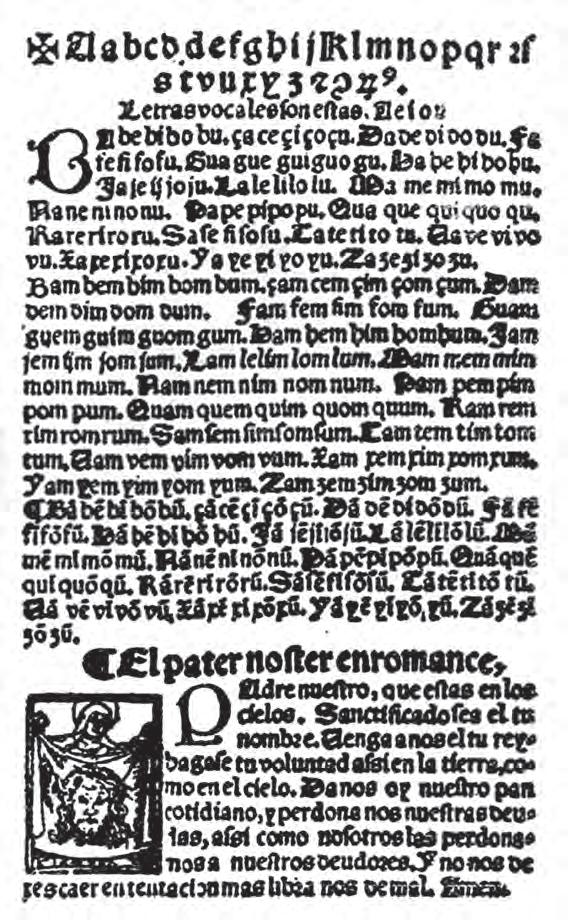 ✠ A a b c d. d e f g h i j k l m n o p q r ꝛ ſ
s t v u x y z ꝛ ꝯ.
Letras vocales son estas. A e i o u
BA be bi bo bu. ça ce çi ço çu. Da de di do du. Fa
fe fi fo fu. Gua gue gui guo gu. Ha he hi ho hu.
Ja je ij jo ju. La le li lo lu. Ma me mi mo mu.
Na ne ni no nu. Pa pe pi po pu. Qua que qui quo qu.
Ra re ri ro ru. Sa se si so su. Ta te ti to tu. Ua ve vi vo
vu. Xa xe xi xo xu. Ya ye yi yo yu. Za ze zi zo zu.
Bam bem bim bom bum. çam cem çim çom çum. Dam
dem dim dom dum. Fam fem fim fom fum. Guam
guem guim guom gum. Ham hem him hom hum. Jam
jem ijm jom jum. Lam lem lim lom lum. Mam mem mim
mom mum. Nam nem nim nom num. Pam pem pim
pom pum. Quam quem quim quom quum. Ram rem
rim rom rum. Sam sem sim som sum. Tam tem tim tom
tum. Uam vem vim vom vum. Xam xem xim xom xum.
Yam yem yim yom yum. Zam zem zim zom zum.
¶ Bā bē bī bō bū. çā cē çī çō çū. Dā dē dī dō dū. Fā fē
fī fō fū. Hā hē hī hō hū. Jā jē jī jō jū. Lā lē lī lō lū. Mā
mē mī mō mū. Nā nē nī nō nū. Pā pē pī pō pū. Quā quē
quī quō qū. Rā rē rī rō rū. Sā sē sī sō sū. Tā tē tī tō tū.
Uā vē vī vō vū. Xā xē xī xō xū. Yā yē yī yō, yū. Zā zē zī
zō zū.
¶ El pater noster en romance,
PAdre nuestro, que estas en los
cielos. Sanctificado sea el tu
nombre. Uenga a nos el tu rey-
hagase tu voluntad assi en la tierra, co-
mo en el cielo. Danos oy nuestro pan
cotidiano, y perdona nos nuestras deu-
das, assi como nosotros las perdona-
mos a nuestros deudores. Y no nos de
xes caer en tentacion mas libra nos de mal. Amen.